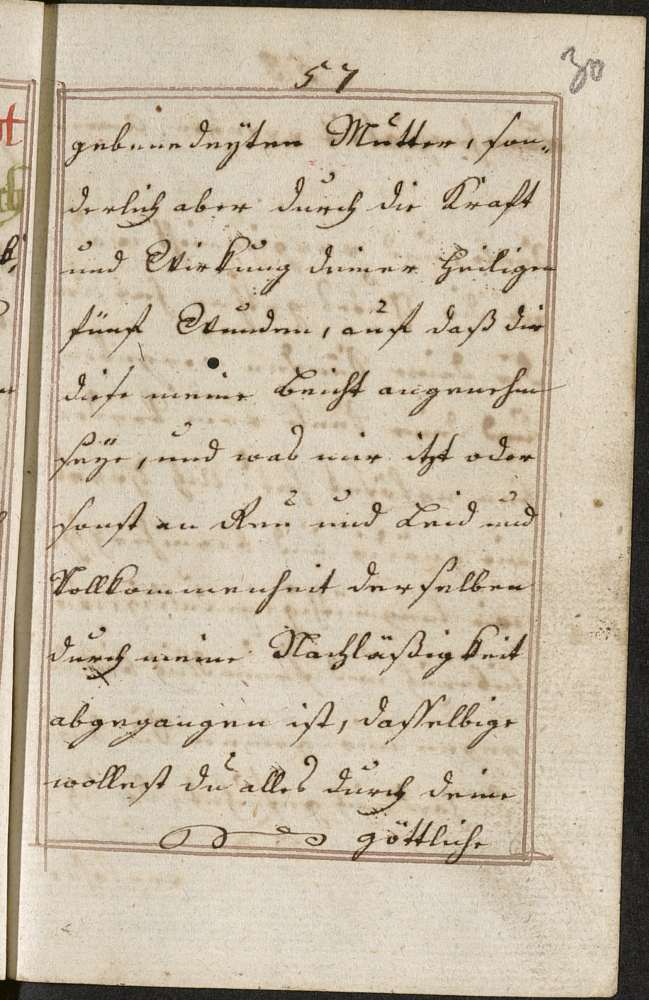 57
30
gebenedeyten Mutter, son-
derlich aber durch die Kraft
und Wirkung deiner heiligen
fünf Wunden, auf daß dir
diese meine Beicht angenehm
seye, und was mir itzt oder
sonst an Reu und Leid und
Vollkommenheit derselben
durch meine Nachläßigkeit
abgegangen ist, dasselbige
wollest du alles durch deine
göttliche